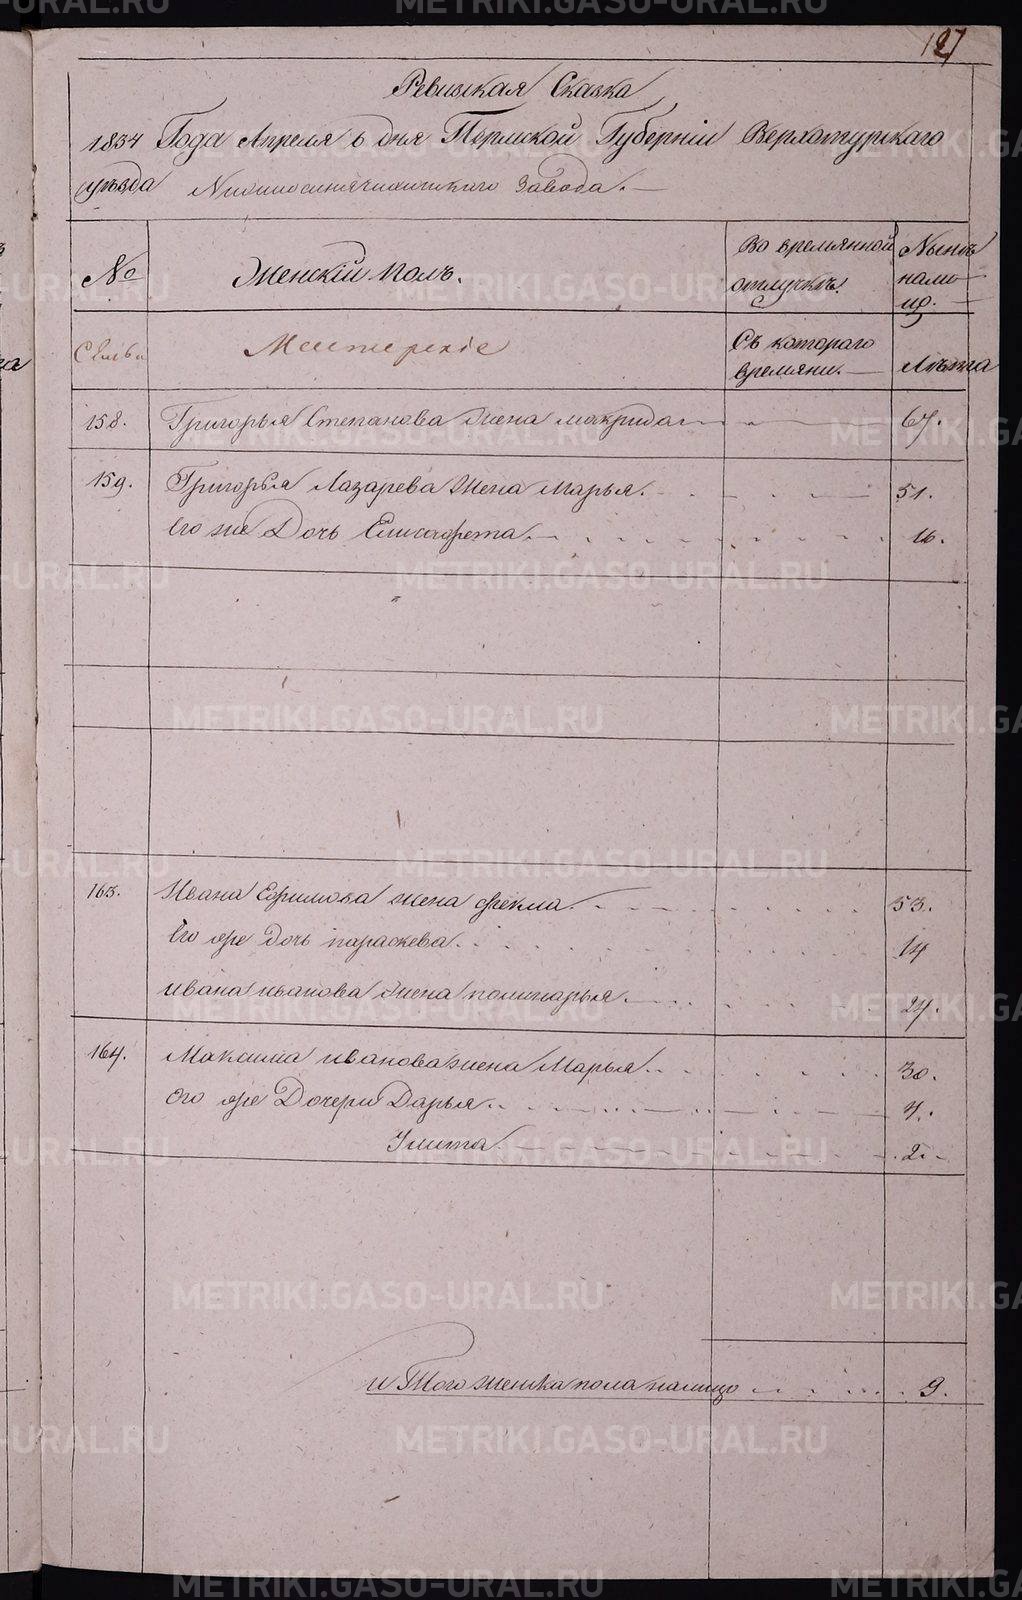 127
Ревизкая Сказка
1834 Года Апреля 6 дня Пермской Губернии Верхотурскаго
уезда Нижносинячихинскаго завода.
№ Женскiй полъ. Во времянной отлучкѣ. Нынѣ налицо.
Семьи Мастерскiе Съ котораго времяни. Лѣта
158. Григорья Степанова жена макрида 67.
159. Григорья Лазарева жена Марья. 51.
Его же Дочь Елисафета. 16.
163. Ивана Ефимова жена фекла. 53.
Его же дочь параскева. 14
ивана иванова жена полинарья. 24.
164. Максима иванова жена Марья. 30.
Его же Дочери Дарья. 4.
Улита. 2.
и Того женска пола налицо 9.
METRIKI.GASO-URAL.RU